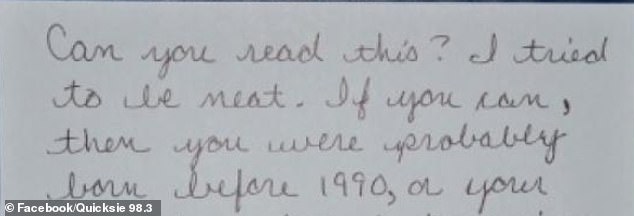 Can you read this? I tried
to be neat. If you can,
then you were probably
born before 1990, or your
© Facebook/Quicksie 98.3